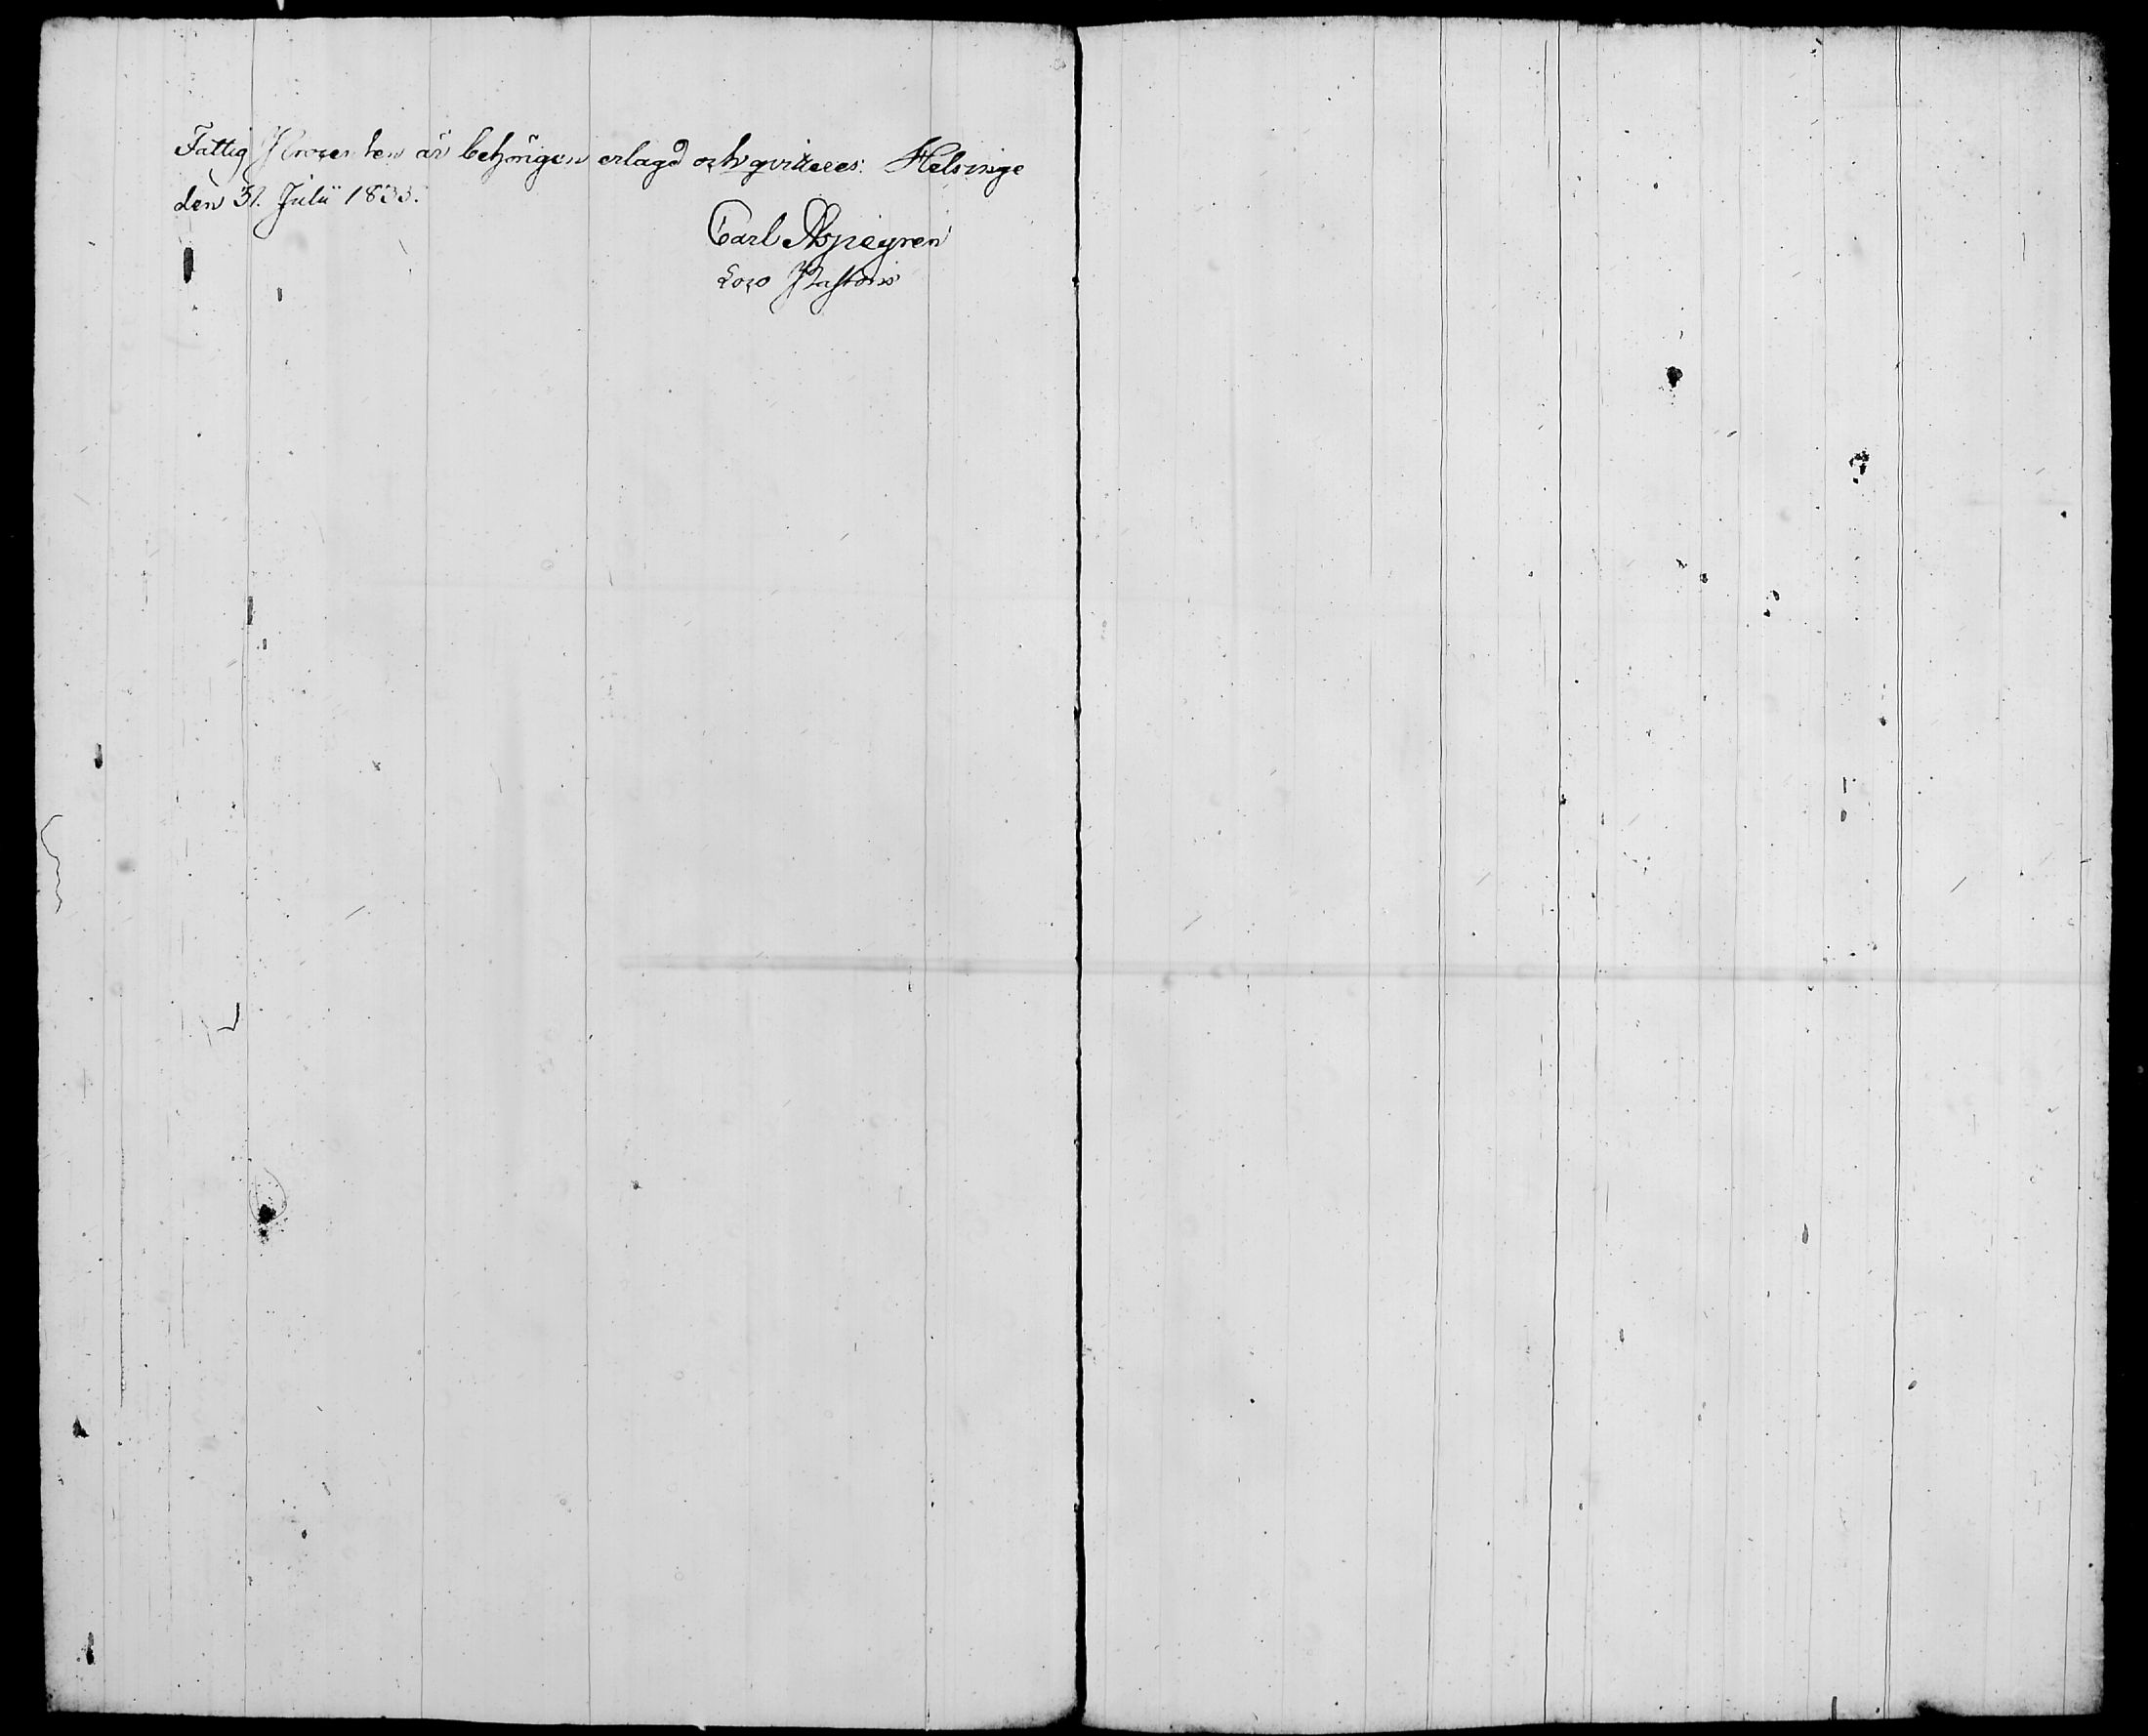 Fattig Procenten är behörigen erlagd och qvitteres: Helsinge
den 31. Julii 1833.
Carl Aspegren
Loco Pastoris